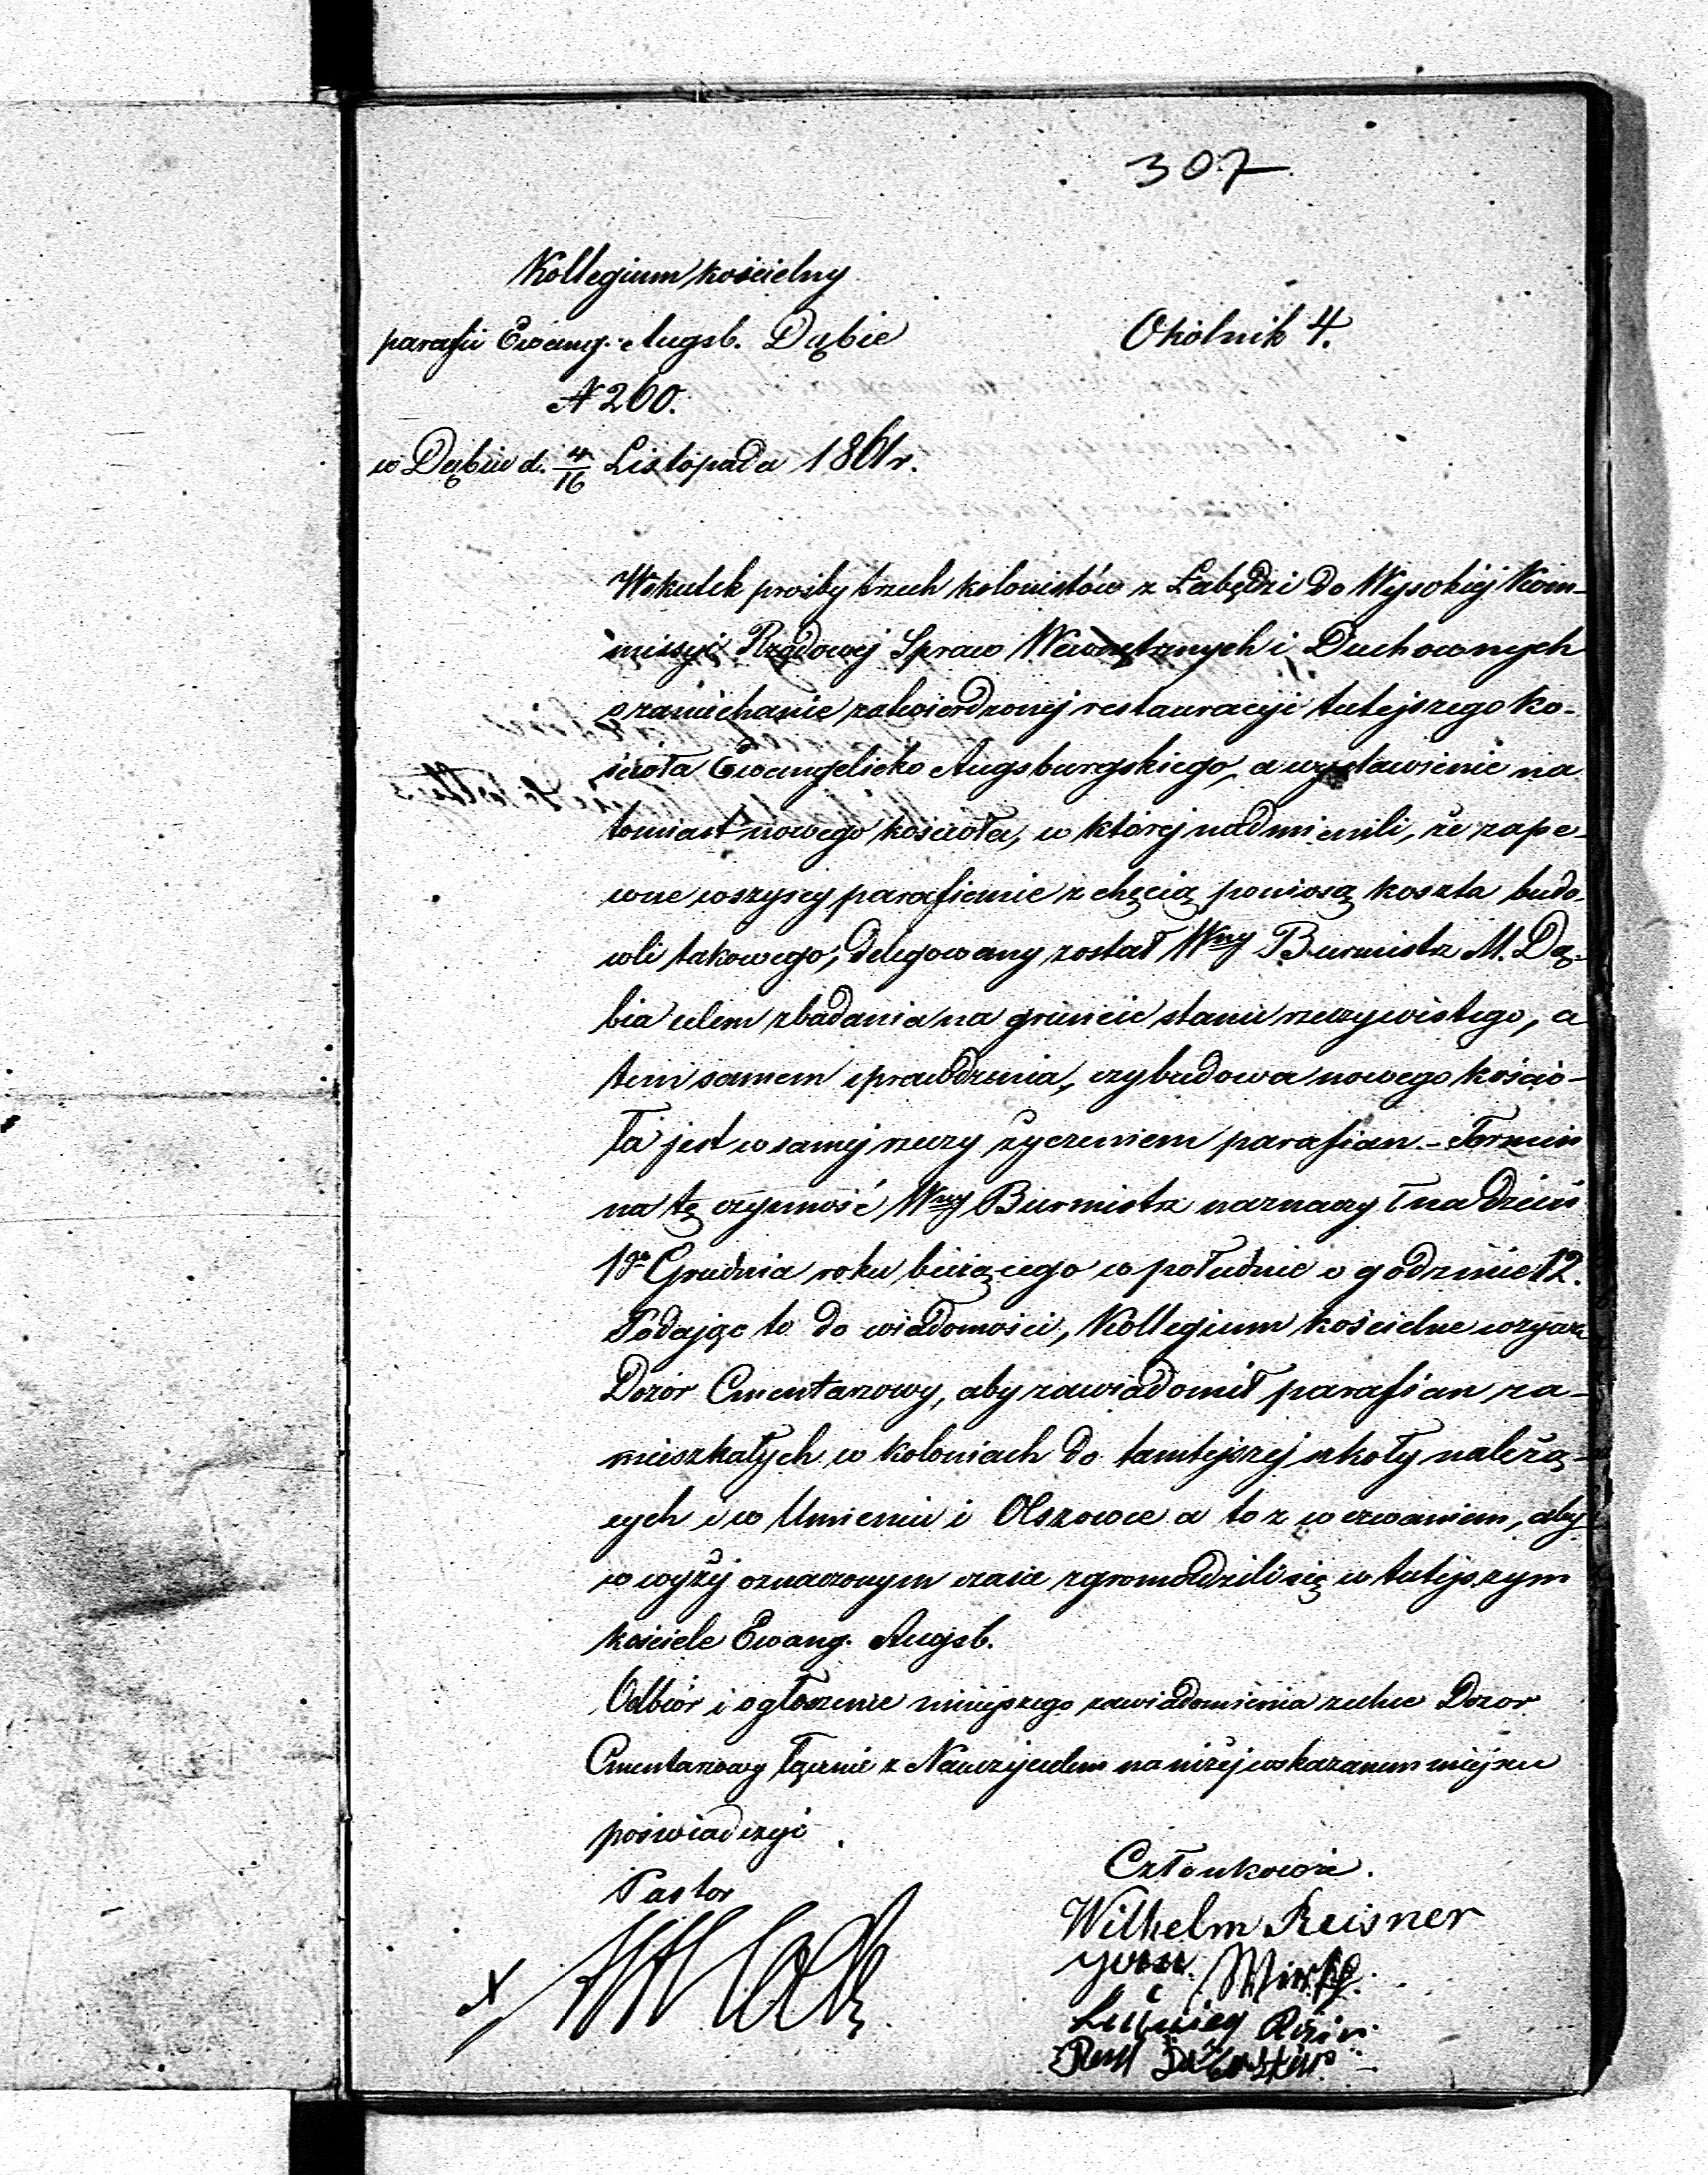 307
Kollegium kościelny
parafii Ewang. Augsb. Dąbie
Okólnik 4.
N 260.
w Dąbiu d. 4/16 Listopada 1861 r.
Wskutek prośby trzech kolonistów z Łabędzi do Wysokiéj Kom-
missyi Rządowéj Spraw Wewnętrznych i Duchownych
o zaniechanie zatwierdzonéj restauracyi tutejszego ko-
ścioła Ewangelicko Augsburgskiego, a wystawienie na
tomiast nowego kościoła, w któréj nadmienili, że zape-
wne wszyscy parafianie z chęcią poniosą koszta budo-
wli takowego, delegowany został Wny Burmistrz M. Dą-
bia celem zbadania na gruncie stanu rzeczywistego, a
tem samem sprawdzenia, czy budowa nowego kościo-
ła jest w saméj rzeczy życzeniem parafian. - Termin
na tę czynność Wny Burmistrz naznaczył na dzień
1go Grudnia roku bieżącego w południe o godzinie 12.
Podając to do wiadomości, Kollegium kościelne wzywa
Dozór Cmentarzowy, aby zawiadomił parafian za-
mieszkałych w koloniach do tamtejszéj szkoły należą-
cych i w Umieniu i Olszowce a to z wezwaniem, aby
w wyżéj oznaczonym czasie zgromadzili się w tutejszym
kościele Ewang. Augsb.
Odbiór i ogłoszenie niniejszego zawiadomienia zechce Dozor
Cmentarzowy łącznie z Nauczycielem na niżéj wskazanem miejscu
poświadczyć.
Pastor
Członkowie.
Wilhelm Reisner